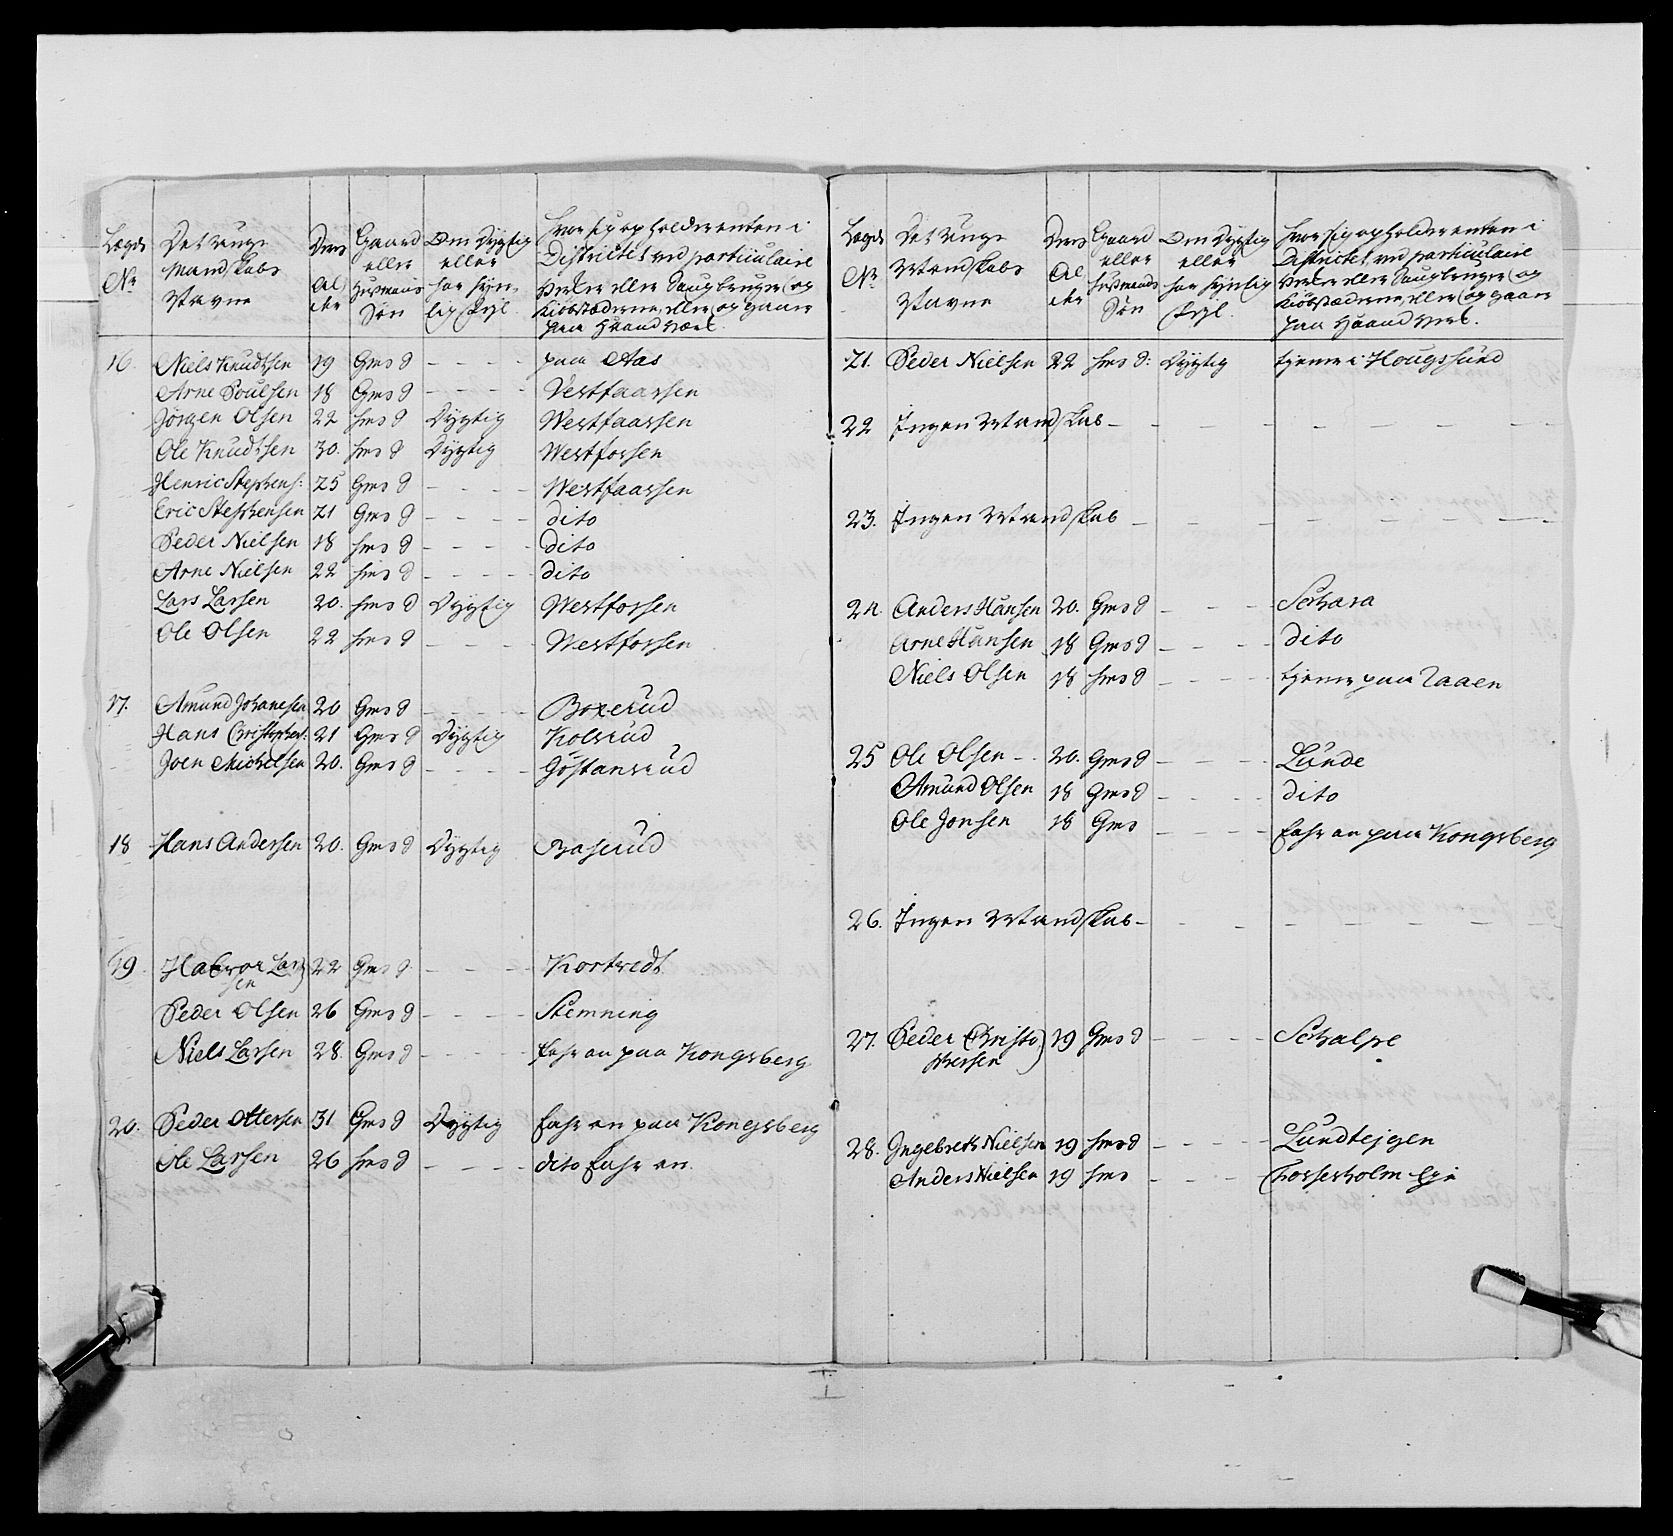 Lægds No
Det unge Mandskabs Navne
Deres Alder
Gaard eller Husmands Søn
Om Dygtig eller har synlig Feyl
Hvor sig opholder enten i Districtet ved particulaire Verker eller Saugbruger og Kiøbstæderne, eller og gaaer paa Haandverk.
16. Niels Knudtsen 19 Gms S - - - - paa Aas
Arne Poulsen 18 Gms S - - - - Vestfaassen
Jörgen Olsen 22 hms S Dygtig Westfaassen
Ole Knudtsen 30. hms S Dygtig Westfossen
Henric Stephens: 25 Gms S - - - - Westfaassen
Eric Stephensen 21 Gms S - - - - dito
Peder Nielsen 18 hms S - - - - dito
Arne Nielsen 22 hms S - - - - dito
Lars Larsen 20. hms S Dygtig Westfossen
Ole Olsen 22 hms S - - - - Westfossen
17. Amund Johanesen 20 Gms S - - - - Boxerud
Hans Christophers: 21 Gms S Dygtig Kolsrud
Joen Michelsen 20. Gms S - - - - Göstansrud
18 Hans Andersen 20. Gms S Dygtig Baserud
19. Halvor Larsen 22 Gms S - - - - Kortvedt
Peder Olsen 26 Gms S - - - - Stemning
Niels Larsen 28. Gms S - - - - fahr en paa Kongsberg
20. Peder Ottersen 31 Gms S Dygtig fahr en paa Kongsberg
Ole Larsen 26 hms S - - - - dito fahr en
Lægds No
Det Unge Mandskabs Navne
Deres Alder
Gaard eller husmands Søn
Om Dygtig eller har synlig Feyl.
Hvor sig opholder enten i Districtet ved particulaire Verker eller Saugbruger og Kiøbstæderne, eller og gaaer paa Haandverk.
21. Peder Nielsen 22 hms S: Dygtig tjener i Hougssund
22 Ingen Mandskab - - - - - - - -
23. Ingen Mandskab - - - - - - - -
24. Anders Hansen 20. Gms S - - - - Schara
Arne Hansen 18 Gms S - - - - dito
Niels Olsen 18 hms S - - - - tjener paa Raaen
25 Ole Olsen - 20. Gms S - - - - Lunde
Amund Olsen 18 Gms S - - - - dito
Ole Jonsen 18 Gms - - - - fahr en paa Kongsberg
26. Ingen Mandskab - - - - - - - -
27. Peder Christophersen 19 Gms S - - - - Schalpe
28. Ingebreth Nielsen 19 hms S - - - - Lundtejgen
Anders Nielsen 19 hms - - - - Fosserholm Eje